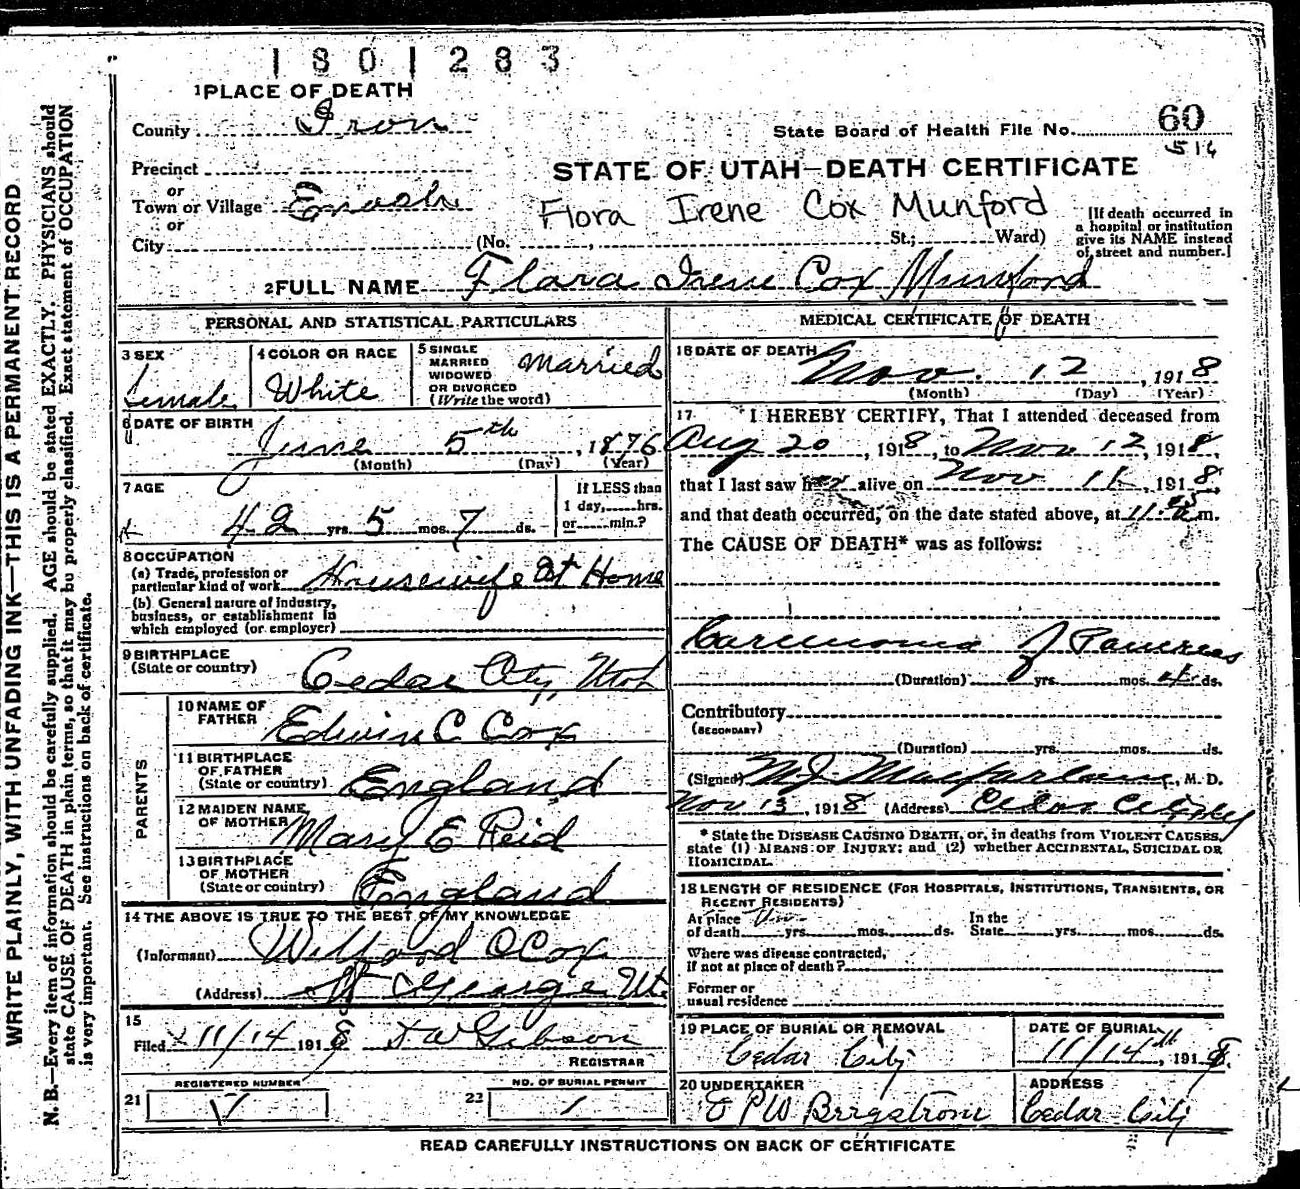 1801283
1 PLACE OF DEATH
County Iron
State Board of Health File No. 60
Precinct
or
STATE OF UTAH—DEATH CERTIFICATE
Town or Village Enoch
or
Flora Irene Cox Munford
City (No. , St.; Ward)
[If death occurred in
a hospital or institution
give its NAME instead
of street and number.]
2 FULL NAME Flora Irene Cox Munford
PERSONAL AND STATISTICAL PARTICULARS
3 SEX
Female
4 COLOR OR RACE
White
5 SINGLE
MARRIED
WIDOWED
OR DIVORCED
(Write the word)
Married
6 DATE OF BIRTH
June 5th, 1876
(Month) (Day) (Year)
7 AGE
42 yrs. 5 mos. 7 ds.
If LESS than
1 day, hrs.
or min.?
8 OCCUPATION
(a) Trade, profession or
particular kind of work Housewife At Home
(b) General nature of Industry,
business, or establishment in
which employed (or employer)
9 BIRTHPLACE
(State or country) Cedar City, Utah
PARENTS
10 NAME OF
FATHER Edwin C Cox
11 BIRTHPLACE
OF FATHER
(State or country) England
12 MAIDEN NAME
OF MOTHER Mary E Reid
13 BIRTHPLACE
OF MOTHER
(State or country) England
14 THE ABOVE IS TRUE TO THE BEST OF MY KNOWLEDGE
(Informant) Wilford O Cox
(Address) St George Ut.
15
Filed 11/14 1918 Gibson
REGISTRAR
REGISTERED NUMBER
21
NO. OF BURIAL PERMIT
22 1
MEDICAL CERTIFICATE OF DEATH
16 DATE OF DEATH
Nov. 12, 1918
(Month) (Day) (Year)
17 I HEREBY CERTIFY, That I attended deceased from
Aug 20, 1918, to Nov 12, 1918,
that I last saw her alive on Nov 11, 1918,
and that death occurred, on the date stated above, at 11 m.
The CAUSE OF DEATH* was as follows:
Carcinoma of Pancreas
(Duration) yrs. mos. ds.
Contributory
(SECONDARY)
(Duration) yrs. mos. ds.
(Signed) M J Macfarlane, M. D.
Nov 13, 1918 (Address) Cedar City
* State the DISEASE CAUSING DEATH, or, in deaths from VIOLENT CAUSES,
state (1) MEANS OF INJURY; and (2) whether ACCIDENTAL, SUICIDAL OR
HOMICIDAL.
18 LENGTH OF RESIDENCE (FOR HOSPITALS, INSTITUTIONS, TRANSIENTS, OR
RECENT RESIDENTS)
At place
of death yrs. mos. ds.
In the
State yrs. mos. ds.
Where was disease contracted,
if not at place of death?
Former or
usual residence
19 PLACE OF BURIAL OR REMOVAL
Cedar City
DATE OF BURIAL
11/14th, 1918.
20 UNDERTAKER
PW Bergstrom
ADDRESS
Cedar City
READ CAREFULLY INSTRUCTIONS ON BACK OF CERTIFICATE
WRITE PLAINLY, WITH UNFADING INK—THIS IS A PERMANENT RECORD
N. B.—Every item of information should be carefully supplied. AGE should be stated EXACTLY. PHYSICIANS should
state CAUSE OF DEATH in plain terms, so that it may be properly classified. Exact statement of OCCUPATION
is very important. See instructions on back of certificate.